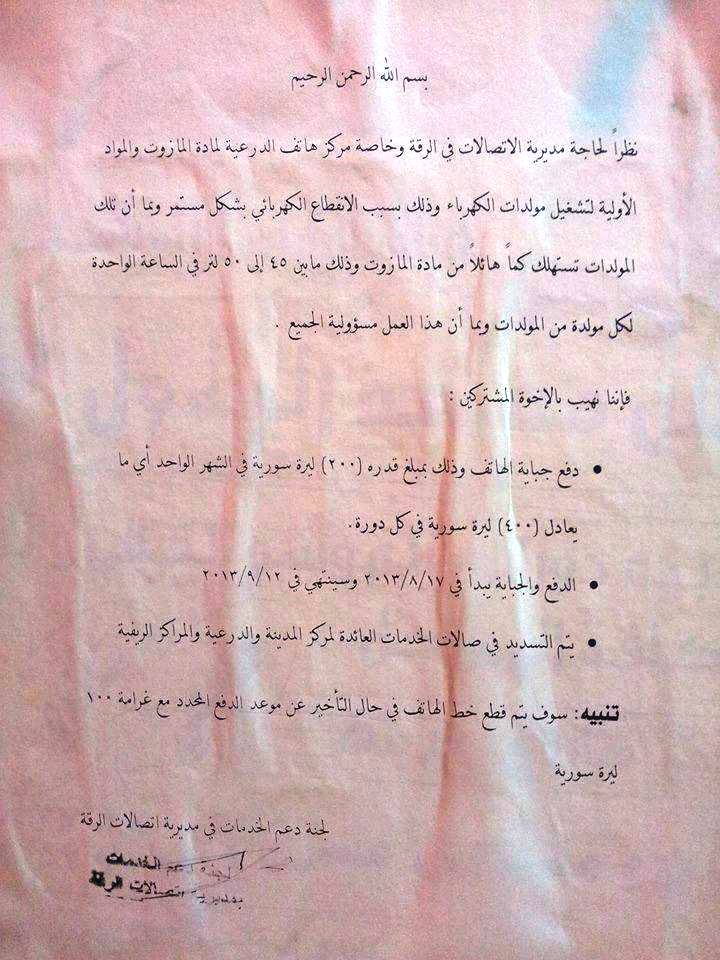 بسم الله الرحمن الرحيم
نظراً لحاجة مديرية الاتصالات في الرقة وخاصة مركز هاتف الدرعية لمادة المازوت والمواد
الأولية لتشغيل مولدات الكهرباء وذلك بسبب الانقطاع الكهربائي بشكل مستمر وبما أن تلك
المولدات تستهلك كماً هائلاً من مادة المازوت وذلك مابين ٤٥ إلى ٥٠ لتر في الساعة الواحدة
لكل مولدة من المولدات وبما أن هذا العمل مسؤولية الجميع .
فإننا نهيب بالإخوة المشتركين :
• دفع جباية الهاتف وذلك بمبلغ قدره (٢٠٠) ليرة سورية في الشهر الواحد أي ما
يعادل (٤٠٠) ليرة سورية في كل دورة.
• الدفع والجباية يبدأ في ٢٠١٣/٨/١٧ وسينتهي في ٢٠١٣/٩/١٢
• يتم التسديد في صالات الخدمات العائدة لمركز المدينة والدرعية والمراكز الريفية
تنبيه: سوف يتم قطع خط الهاتف في حال التأخير عن موعد الدفع المحدد مع غرامة ١٠٠
ليرة سورية
لجنة دعم الخدمات في مديرية اتصالات الرقة
لجنة دعم الخدمات
بمديرية اتصالات الرقة